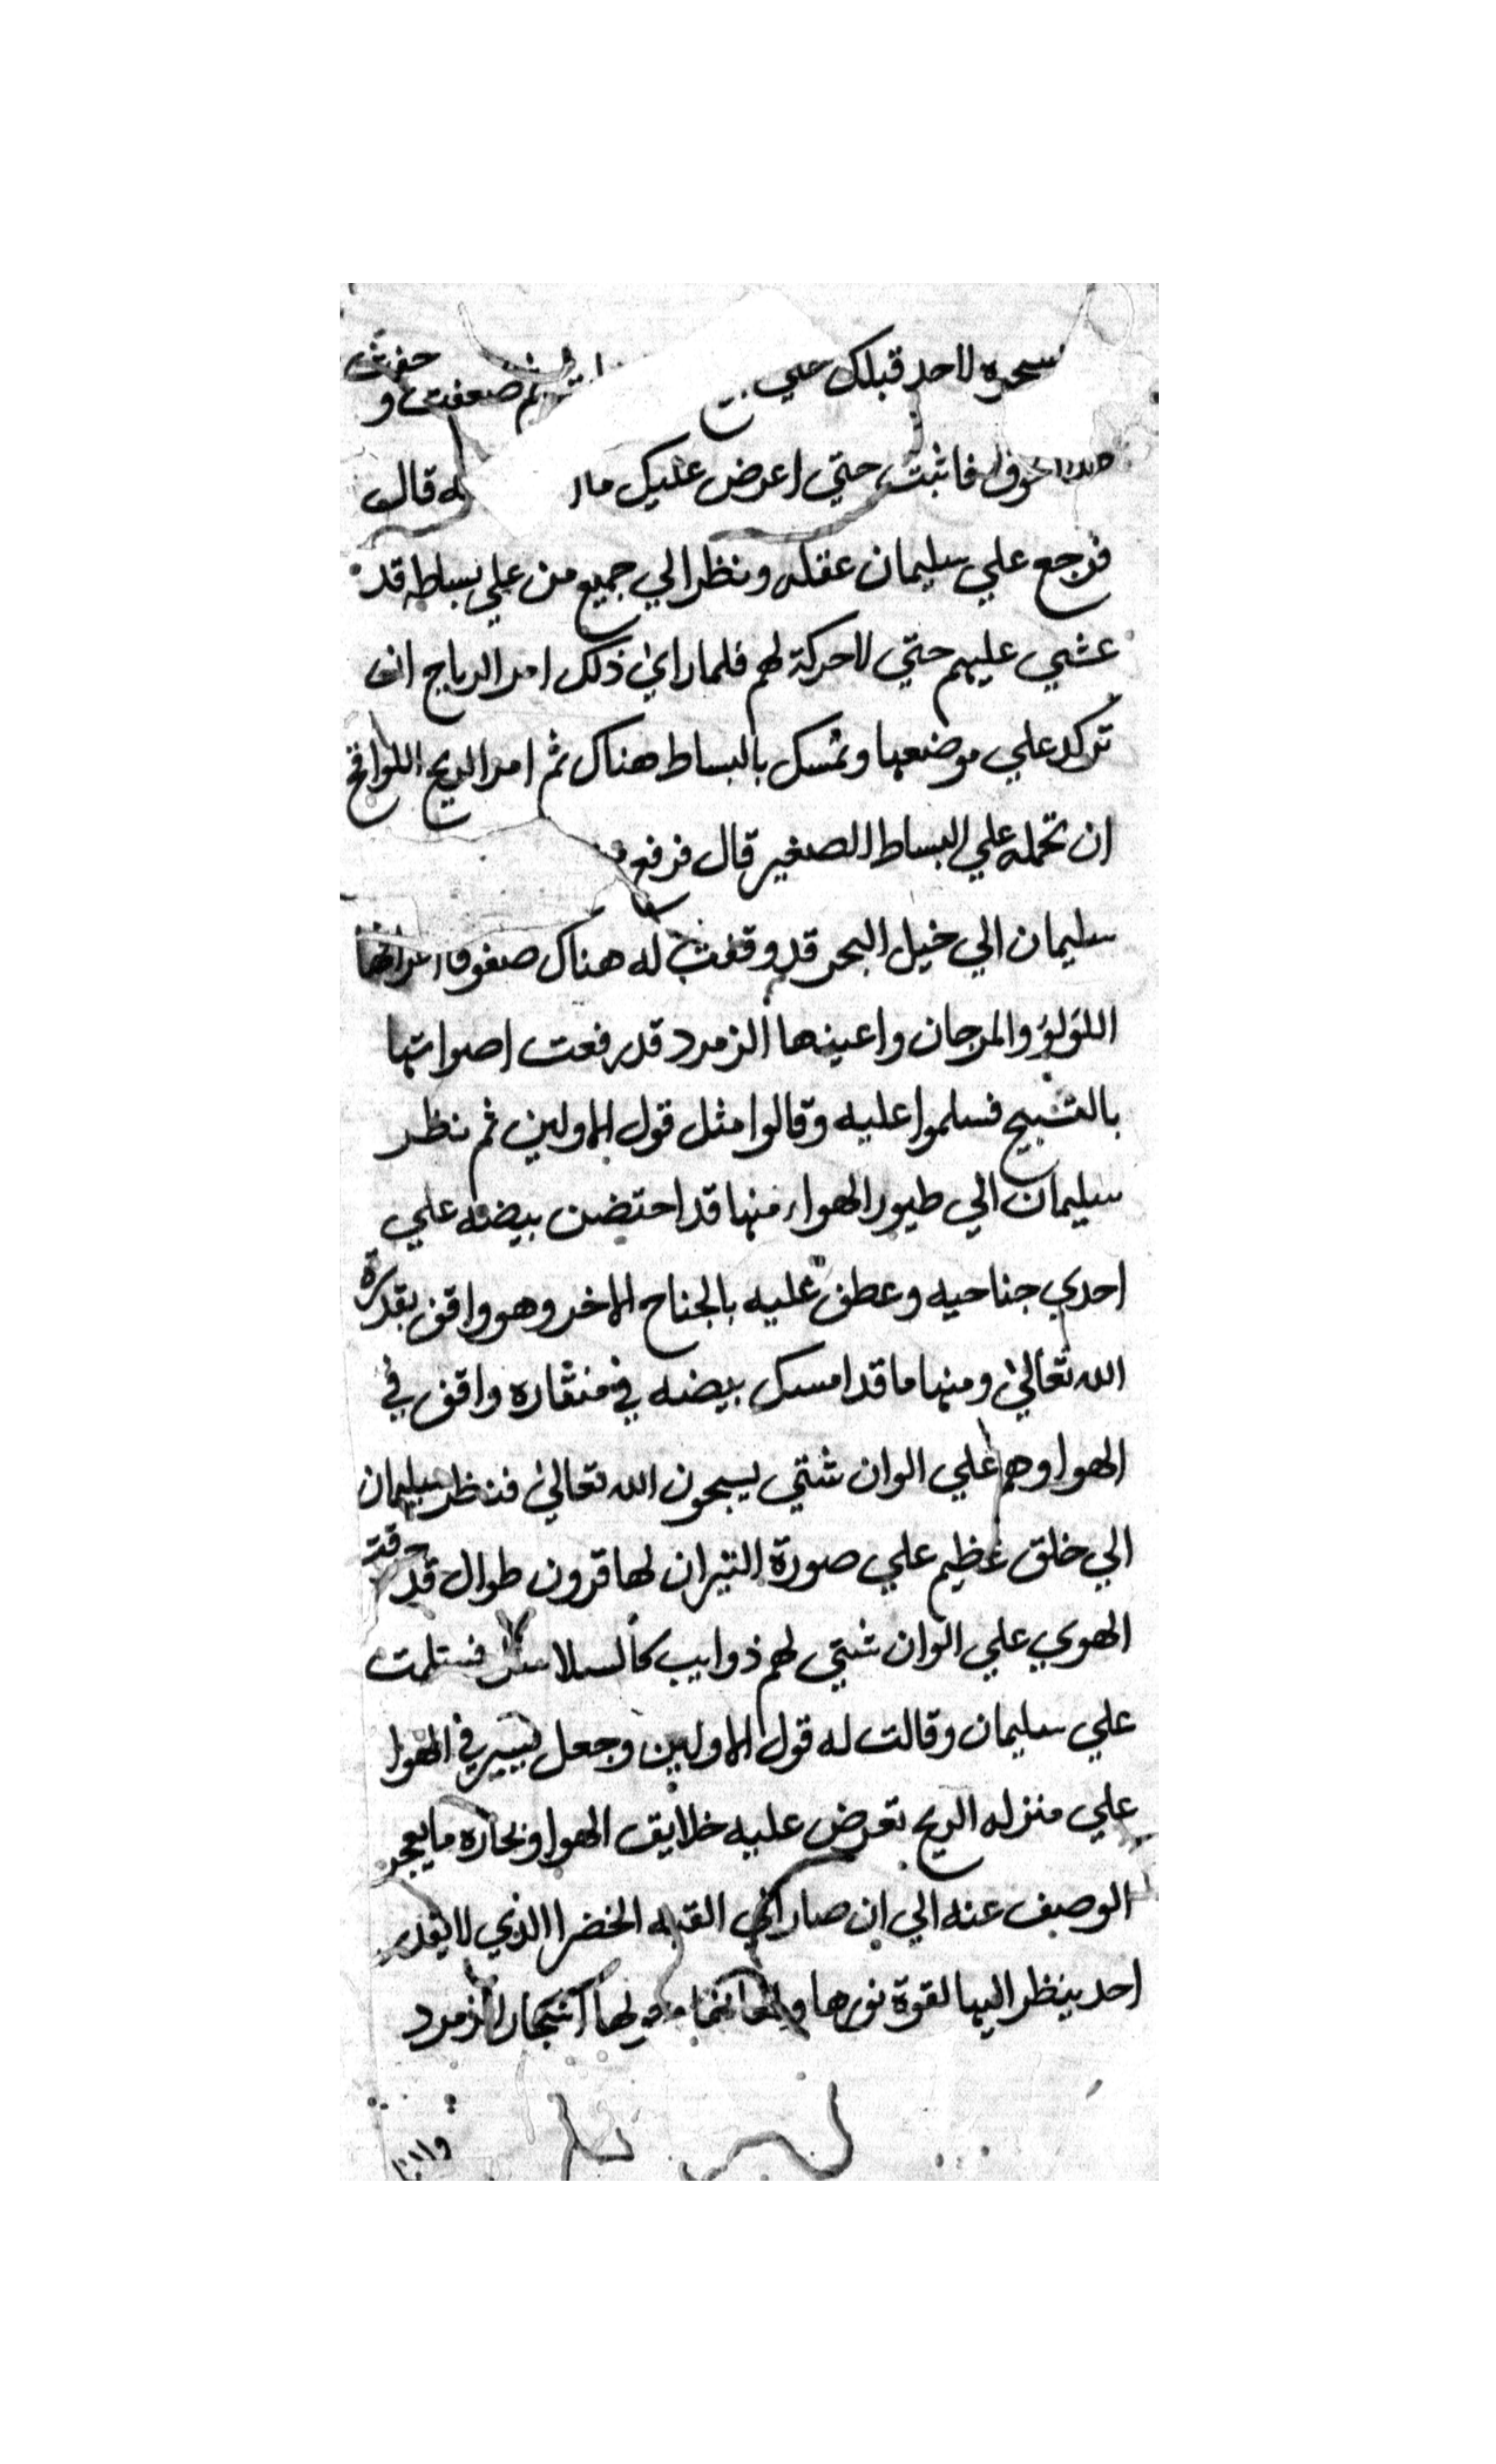 لاحد قبلك علي ثم ضعفت و خفت
فاثبت حتي اعرض عليك ما له قال
فرجع علي سليمان عقله ونظر الي جميع من علي بساطه قد
عشي عليهم حتي لا حركة لهم فلما راي ذلك امر الرياح ان
تركد علي موضعها وتمسك بالبساط هناك ثم امر الريح اللواقح
ان تحمله علي البساط الصغير قال فرفع
سليمان الي خيل البحر قد وقفت له هناك صفوفا اعرافها
اللولؤ والمرجان واعينها الزمرد قد رفعت اصواتها
بالتسبيح فسلموا عليه وقالوا مثل قول الاولين ثم نظر
سليمان الي طيور الهواء منها قد احتضن بيضه علي
احدي جناحيه وعطف عليه بالجناح الاخر وهو واقف بقدرة
الله تعالي ومنها ما قد امسك بيضه في منقاره واقف في
الهوا وهم علي الوان شتي يسبحون الله تعالي فنظر سليمان
الي خلق عظيم علي صورة الثيران لها قرون طوال قد خرقت
الهوي علي الوان شتي لهم ذوايب كالسلاسل فسلمت
علي سليمان وقالت له قول الاولين وجعل يسير في الهوا
علي منزله الريح تعرض عليه خلايق الهوا وبحاره ما يعجز
الوصف عنه الي ان صار الي القبه الخضرا الذي لا يقدر
احد ينظر اليها لقوة نورها لها اشجار الزمرد